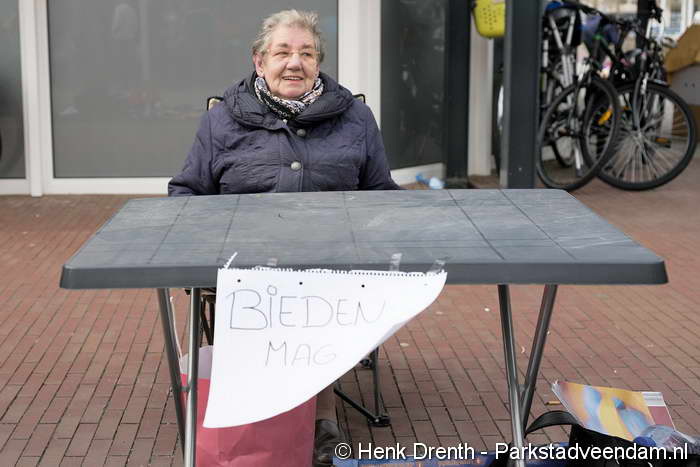 BIEDEN
MAG
© Henk Drenth - Parkstadveendam.nl